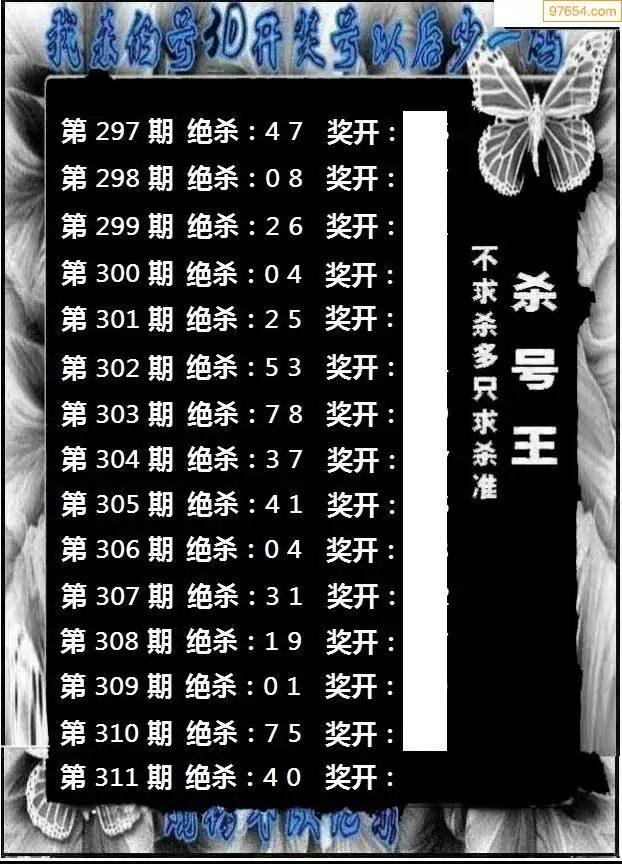 97654.com
我杀的号3D开奖号以后少一码
第 297 期 绝杀：4 7 奖开：
第 298 期 绝杀：0 8 奖开：
第 299 期 绝杀：2 6 奖开：
第 300 期 绝杀：0 4 奖开：
第 301 期 绝杀：2 5 奖开：
第 302 期 绝杀：5 3 奖开：
第 303 期 绝杀：7 8 奖开：
第 304 期 绝杀：3 7 奖开：
第 305 期 绝杀：4 1 奖开：
第 306 期 绝杀：0 4 奖开：
第 307 期 绝杀：3 1 奖开：
第 308 期 绝杀：1 9 奖开：
第 309 期 绝杀：0 1 奖开：
第 310 期 绝杀：7 5 奖开：
第 311 期 绝杀：4 0 奖开：
杀号王
不求杀多只求杀准